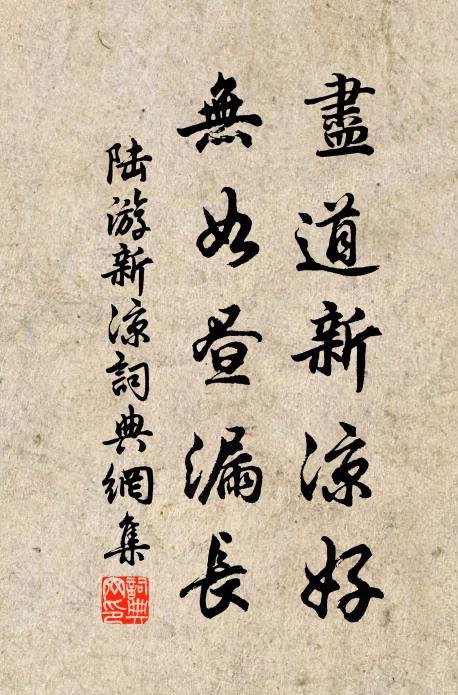 盡道新涼好
無如晝漏長
陸游新涼詞典網集
詞典網印